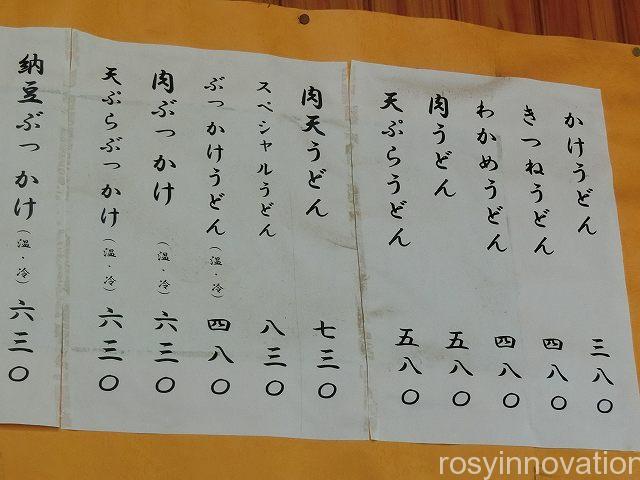 かけうどん 三八〇
きつねうどん 四八〇
わかめうどん 四八〇
肉うどん 五八〇
天ぷらうどん 五八〇
肉天うどん 七三〇
スペシャルうどん 八三〇
ぶっかけうどん(温・冷) 四八〇
肉ぶっかけ(温・冷) 六三〇
天ぷらぶっかけ(温・冷) 六三〇
納豆ぶっかけ(温・冷) 六三〇
rosyinnovation